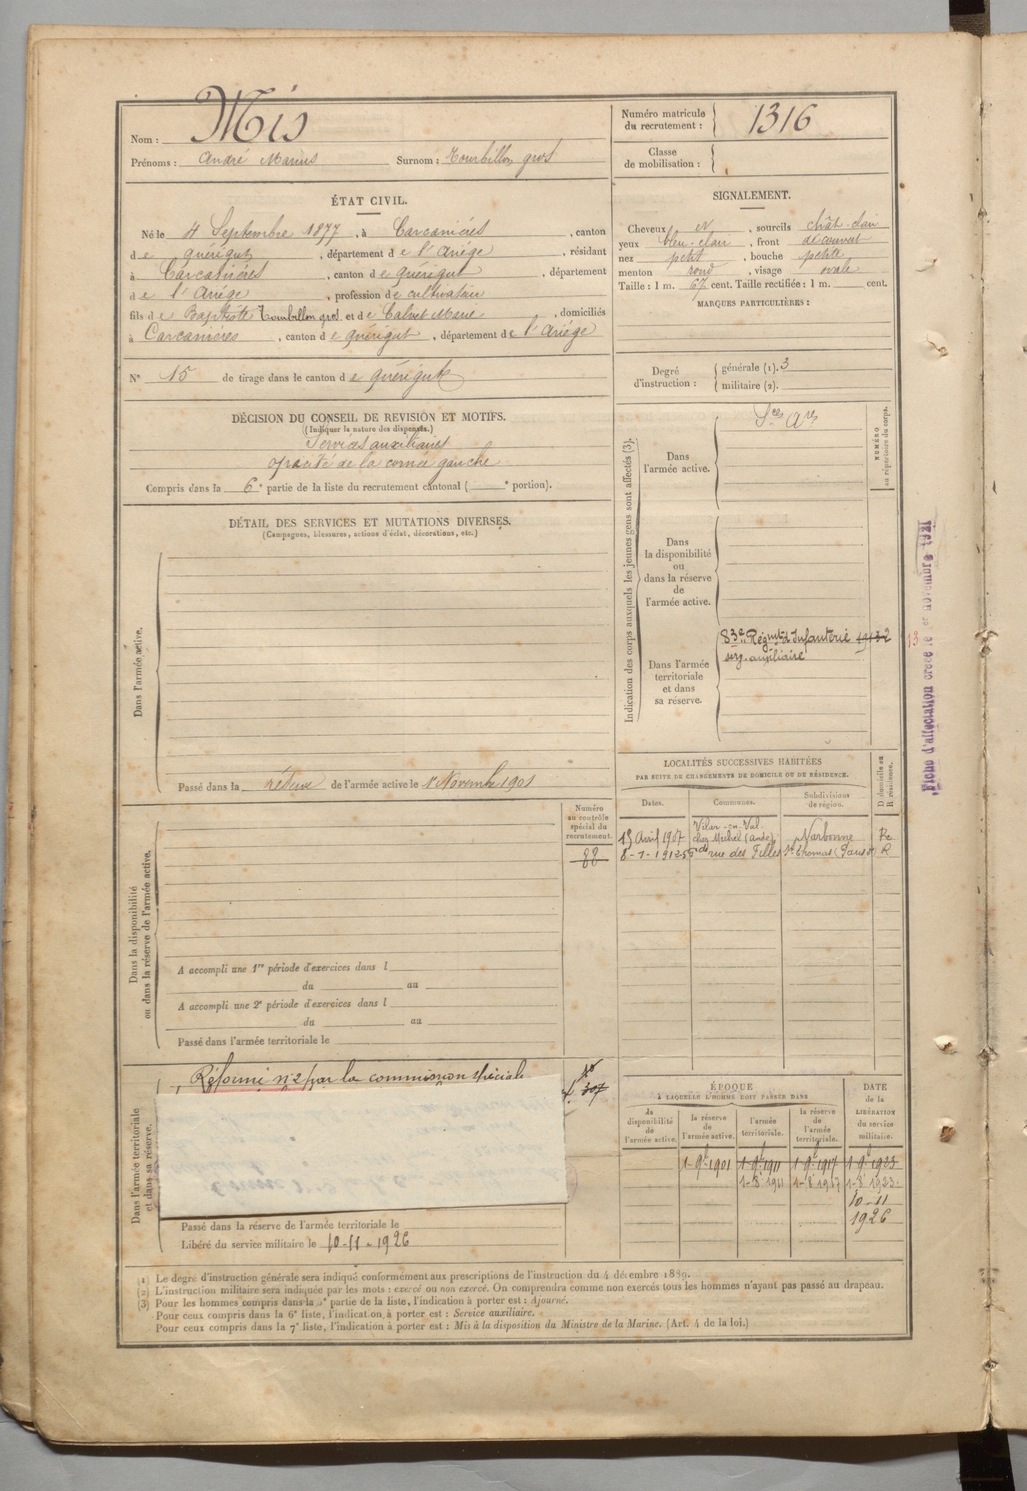 Nom : Mis
Prénoms : André Marius Surnom : Tourbillon gros
Numéro matricule du recrutement : 1316
Classe de mobilisation :
ÉTAT CIVIL.
Né le 4 Septembre 1877, à Carcanières, canton
de Quérigut, département de l'Ariége, résidant
à Carcanières, canton de Quérigut, département
de l'Ariége, profession de cultivateur
fils de Baptiste Tourbillon gros et de Calvet Marie, domiciliés
à Carcanières, canton de Quérigut, département de l'Ariége
N° 15 de tirage dans le canton de Quérigut
SIGNALEMENT.
Cheveux , sourcils chât-clair
yeux bleu-clair, front découvert
nez petit, bouche petite
menton rond, visage ovale
Taille : 1 m. 67 cent. Taille rectifiée : 1 m. cent.
MARQUES PARTICULIÈRES :
Degré d'instruction : générale (1). 3
militaire (2).
DÉCISION DU CONSEIL DE REVISION ET MOTIFS.
(Indiquer la nature des dispenses.)
Services auxiliaires
opacité de la cornée gauche
Compris dans la 6e partie de la liste du recrutement cantonal ( e portion).
DÉTAIL DES SERVICES ET MUTATIONS DIVERSES.
(Campagnes, blessures, actions d'éclat, décorations, etc.)
Dans l'armée active.
Passé dans la réserve de l'armée active le 1er Novembre 1901
Indication des corps auxquels les jeunes gens sont affectés (3).
NUMÉRO au répertoire du corps.
Dans l'armée active.
Sces Ares
Dans la disponibilité ou dans la réserve de l'armée active.
Dans l'armée territoriale et dans sa réserve.
83e Régmt d'Infanterie
serv. auxiliaire
13
Fiche d'affectation créée le 1er novembre 1921
LOCALITÉS SUCCESSIVES HABITÉES
PAR SUITE DE CHANGEMENTS DE DOMICILE OU DE RÉSIDENCE.
Dates. Communes. Subdivisions de région. D domicile ou R résidence.
15 Avril 1907 Vilar-en-Val chez Michel (Aude) Narbonne Re
rue des Filles St Thomas R
Numéro au contrôle spécial du recrutement.
88
Dans la disponibilité ou dans la réserve de l'armée active.
A accompli une 1re période d'exercices dans l
du au
A accompli une 2e période d'exercices dans l
du au
Passé dans l'armée territoriale le
Dans l'armée territoriale et dans sa réserve.
Réformé n°2 par la commission spéciale
307
Passé dans la réserve de l'armée territoriale le
Libéré du service militaire le 10-11-1926
ÉPOQUE
A LAQUELLE L'HOMME DOIT PASSER DANS
la disponibilité de l'armée active. la réserve de l'armée active. l'armée territoriale. la réserve de l'armée territoriale. DATE de la LIBÉRATION du service militaire.
1-9bre 1901 1-9bre 1911 1-9bre 1917 1-9bre 1923
1-8bre 1911 1-8bre 1917 1-8bre 1923
10-11
1926
(1) Le degré d'instruction générale sera indiqué conformément aux prescriptions de l'instruction du 4 décembre 1889.
(2) L'instruction militaire sera indiquée par les mots : exercé ou non exercé. On comprendra comme non exercés tous les hommes n'ayant pas passé au drapeau.
(3) Pour les hommes compris dans la 5e partie de la liste, l'indication à porter est : Ajourné.
Pour ceux compris dans la 6e liste, l'indication à porter est : Service auxiliaire.
Pour ceux compris dans la 7e liste, l'indication à porter est : Mis à la disposition du Ministre de la Marine. (Art. 4 de la loi.)